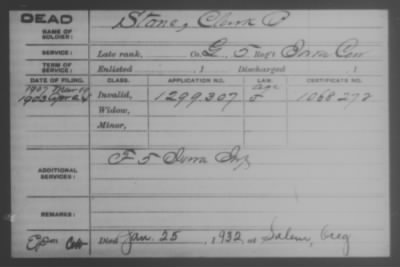 DEAD
NAME OF SOLDIER: Stone, Clark P
SERVICE: Late rank, Co. G, 5 Reg't Iowa Cav
TERM OF SERVICE: Enlisted , 1 Discharged , 1
DATE OF FILING. CLASS. APPLICATION NO. LAW. CERTIFICATE NO.
1907 Mar Age
1903 Invalid, 1299.307 1068.272
Widow,
Minor,
ADDITIONAL SERVICES: F 5 Iowa Inf
REMARKS:
Died Jan. 25, 1932, at Salem, Oreg